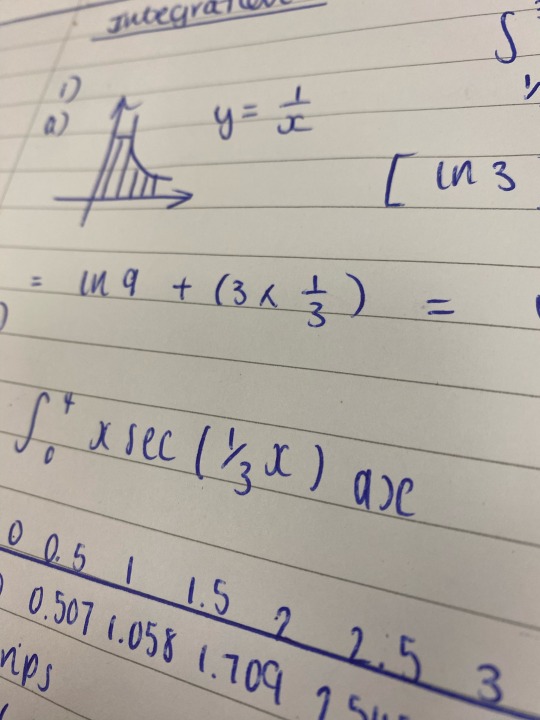 Integration
1)
a) y = 1/x
[ ln 3
= ln 9 + (3 × 1/3) =
∫₀⁴ x sec (1/3 x) dx
0 0.5 1 1.5 2 2.5 3
0.507 1.058 1.709